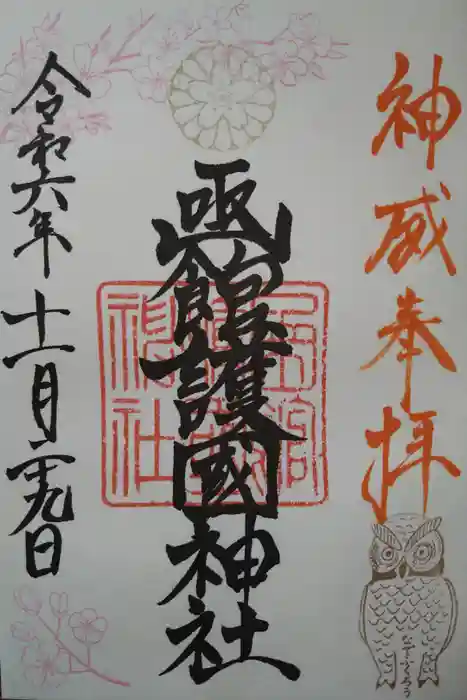 神威奉拝
函館護國神社
函館護國神社
令和六年十一月二十九日
なでふくろう